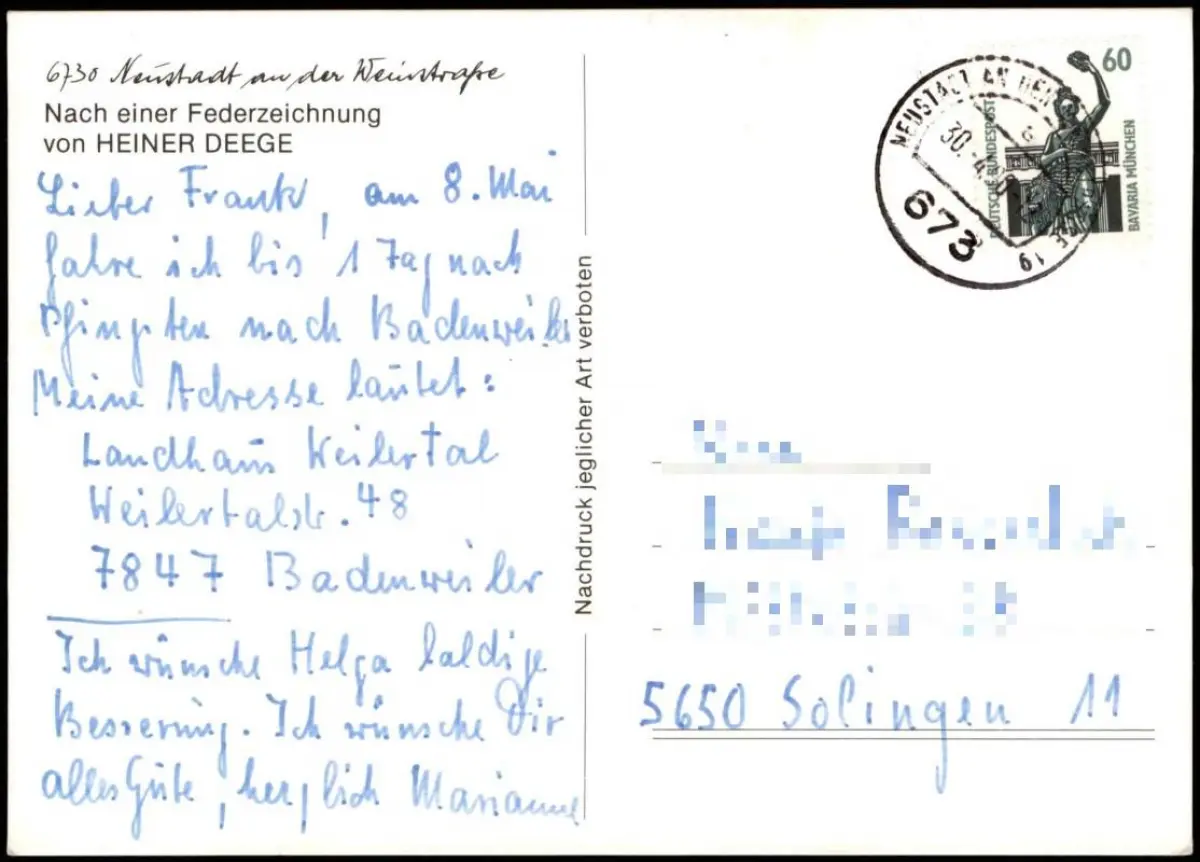 6730 Neustadt an der Weinstraße
Nach einer Federzeichnung
von HEINER DEEGE
Lieber Frank, am 8. Mai
fahre ich bis 1 Tag nach
Pfingsten nach Badenweiler
Meine Adresse lautet:
Landhaus Weilertal
Weilertalstr. 48
7847 Badenweiler
Ich wünsche Helga baldige
Besserung. Ich wünsche Dir
alles Gute, herzlich Marianne
Nachdruck jeglicher Art verboten
NEUSTADT AN DER
30.4.
673
19
60
DEUTSCHE BUNDESPOST
BAVARIA MÜNCHEN
5650 Solingen 11